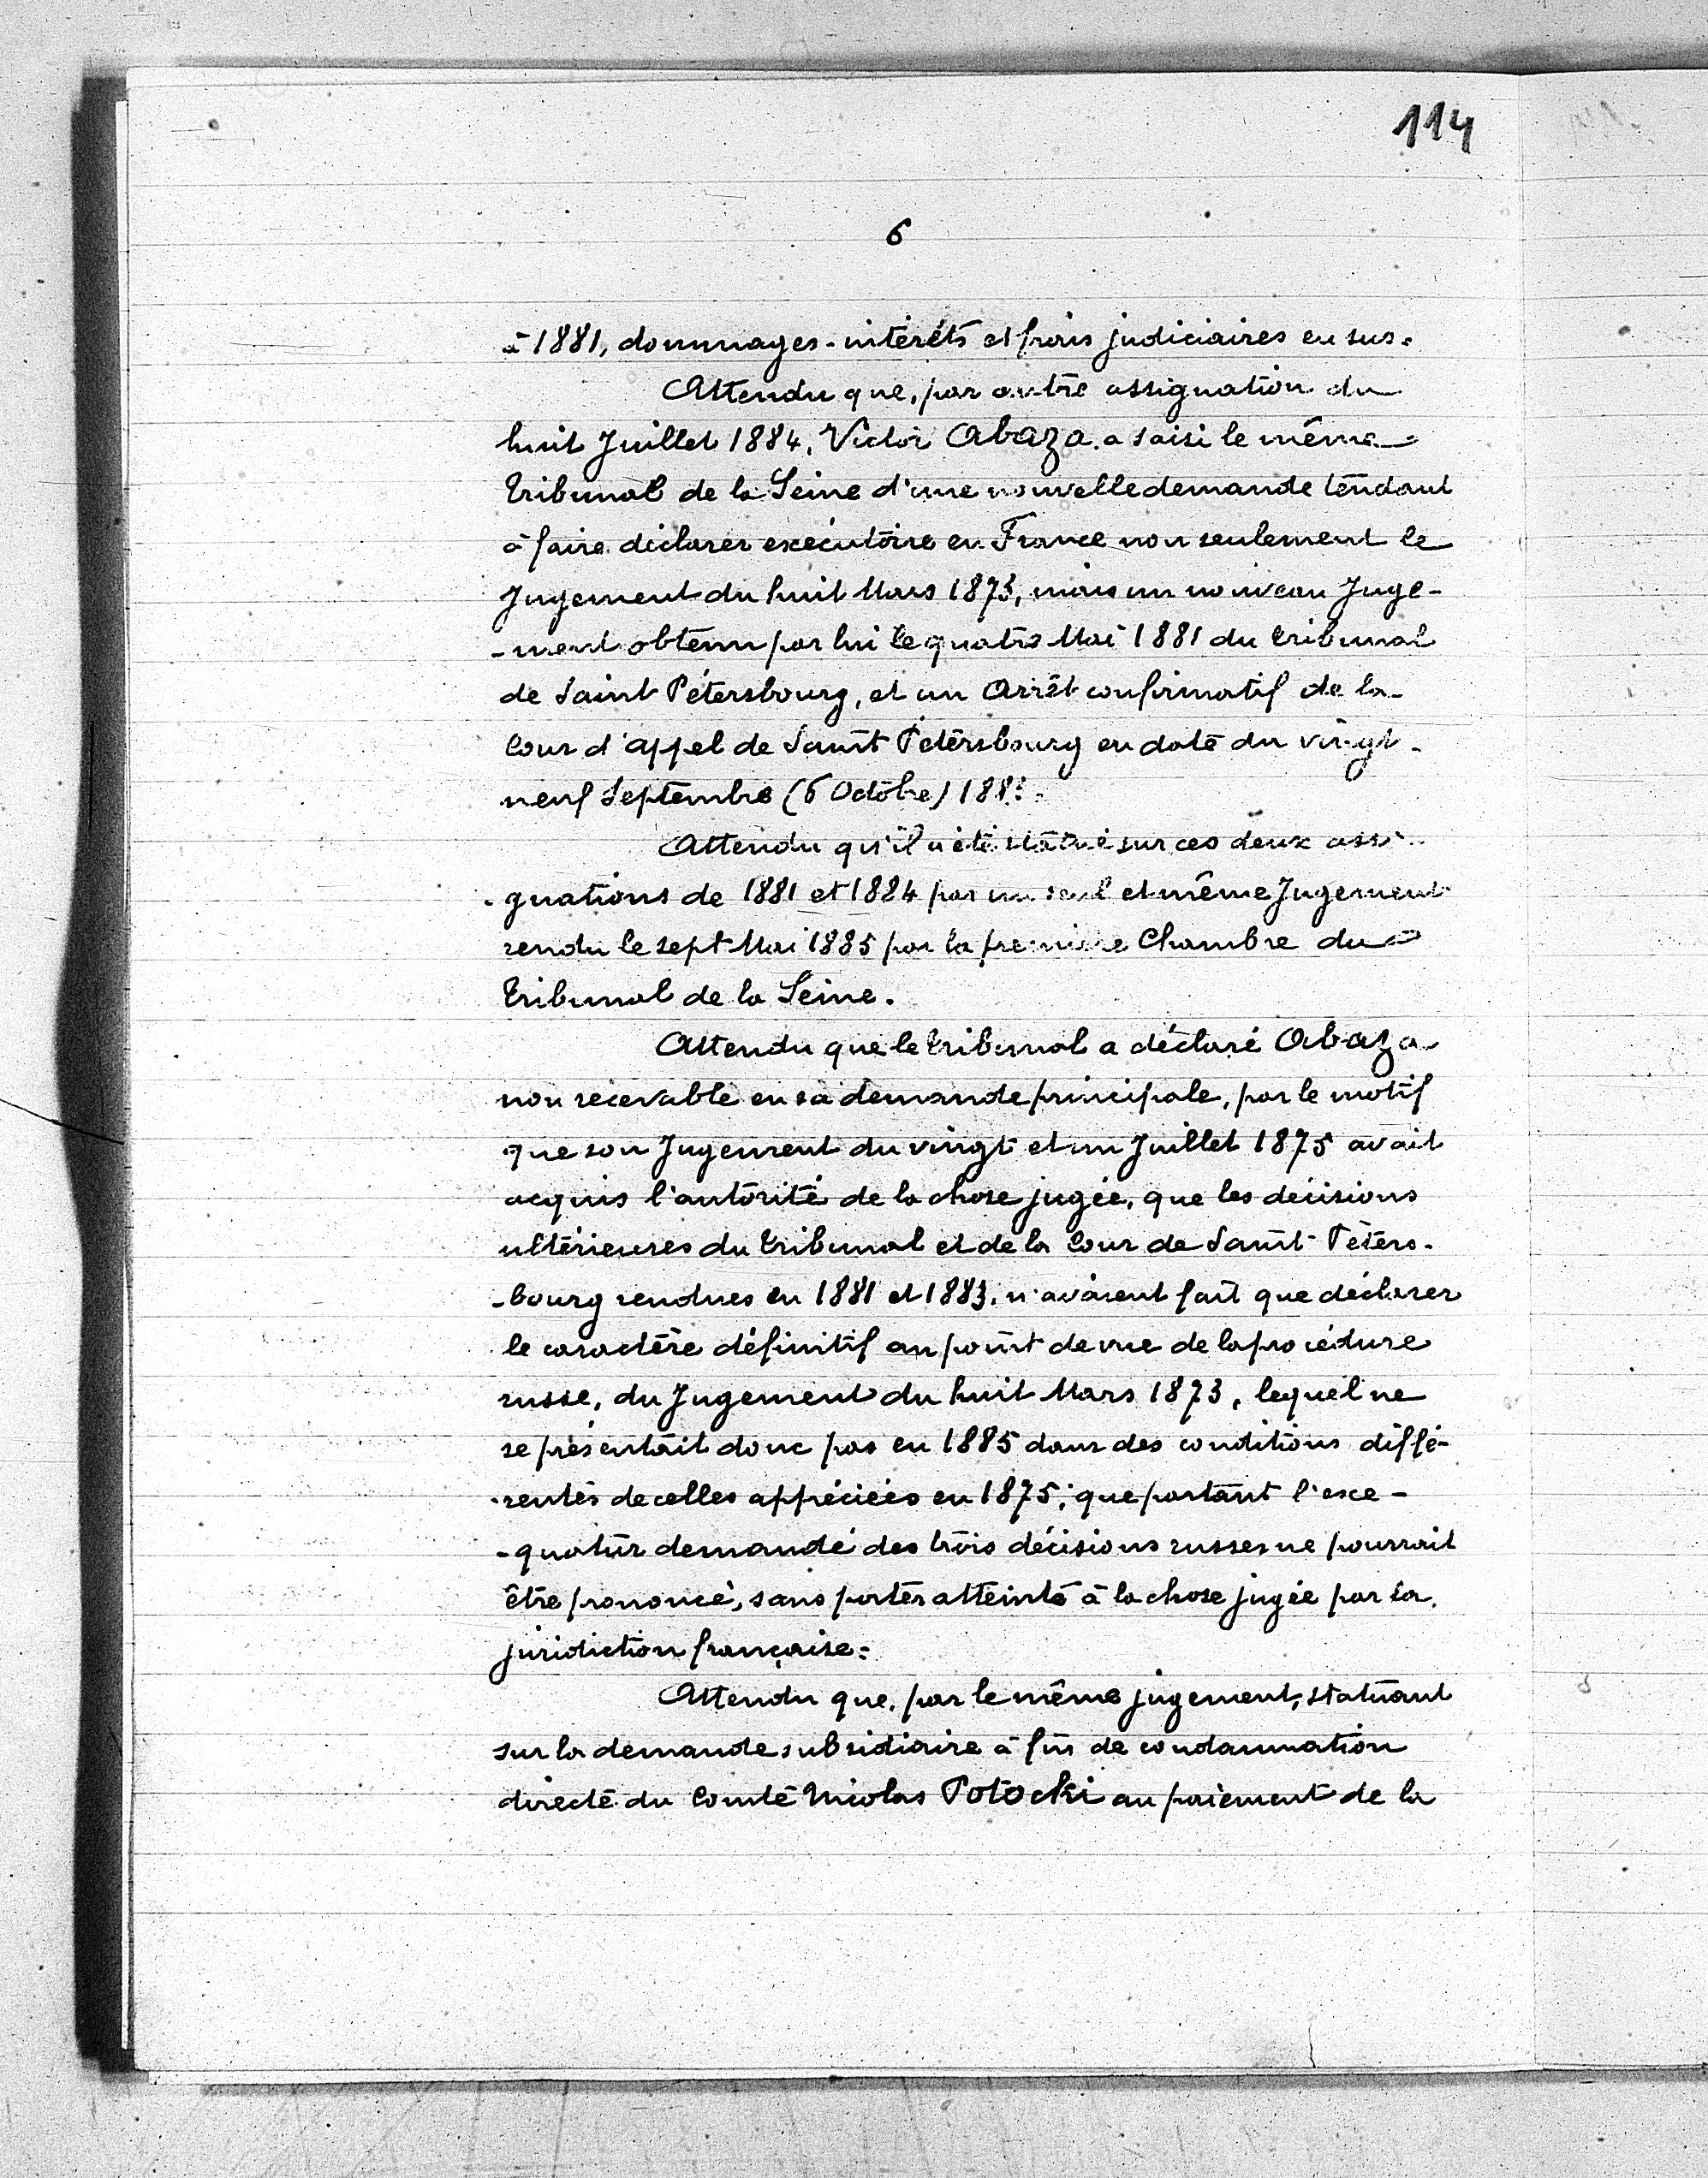 114
6
à 1881, dommages-intérêts et frais judiciaires en sus.
Attendu que, par autre assignation du
huit Juillet 1884, Victor Abaza a saisi le même
Tribunal de la Seine d'une nouvelle demande tendant
à faire déclarer exécutoire en France non seulement le
Jugement du huit Mars 1873, mais un nouveau Juge-
-ment obtenu par lui le quatre Mai 1881 du Tribunal
de Saint Pétersbourg, et un Arrêt confirmatif de la
Cour d'appel de Saint Pétersbourg en date du vingt-
neuf Septembre (6 Octobre)
Attendu qu'il a été statué sur ces deux assi-
-gnations de 1881 et 1884 par un seul et même Jugement
rendu le sept Mai 1885 par la première Chambre du
Tribunal de la Seine.
Attendu que le Tribunal a déclaré Abaza
non recevable en sa demande principale, par le motif
que son Jugement du vingt et un Juillet 1875 avait
acquis l'autorité de la chose jugée, que les décisions
ultérieures du Tribunal et de la Cour de Saint Péters-
-bourg rendues en 1881 et 1883, n'avaient fait que déclarer
le caractère définitif au point de vue de la procédure
russe, du Jugement du huit Mars 1873, lequel ne
se présentait donc pas en 1885 dans des conditions diffé-
-rentes de celles appréciées en 1875; que partant l'exe-
-quatur demandé des trois décisions russes ne pourrait
être prononcé, sans porter atteinte à la chose jugée par la
juridiction française.
Attendu que, par le même jugement, statuant
sur la demande subsidiaire à fin de condamnation
directe du Comte Nicolas Potocki au paiement de la